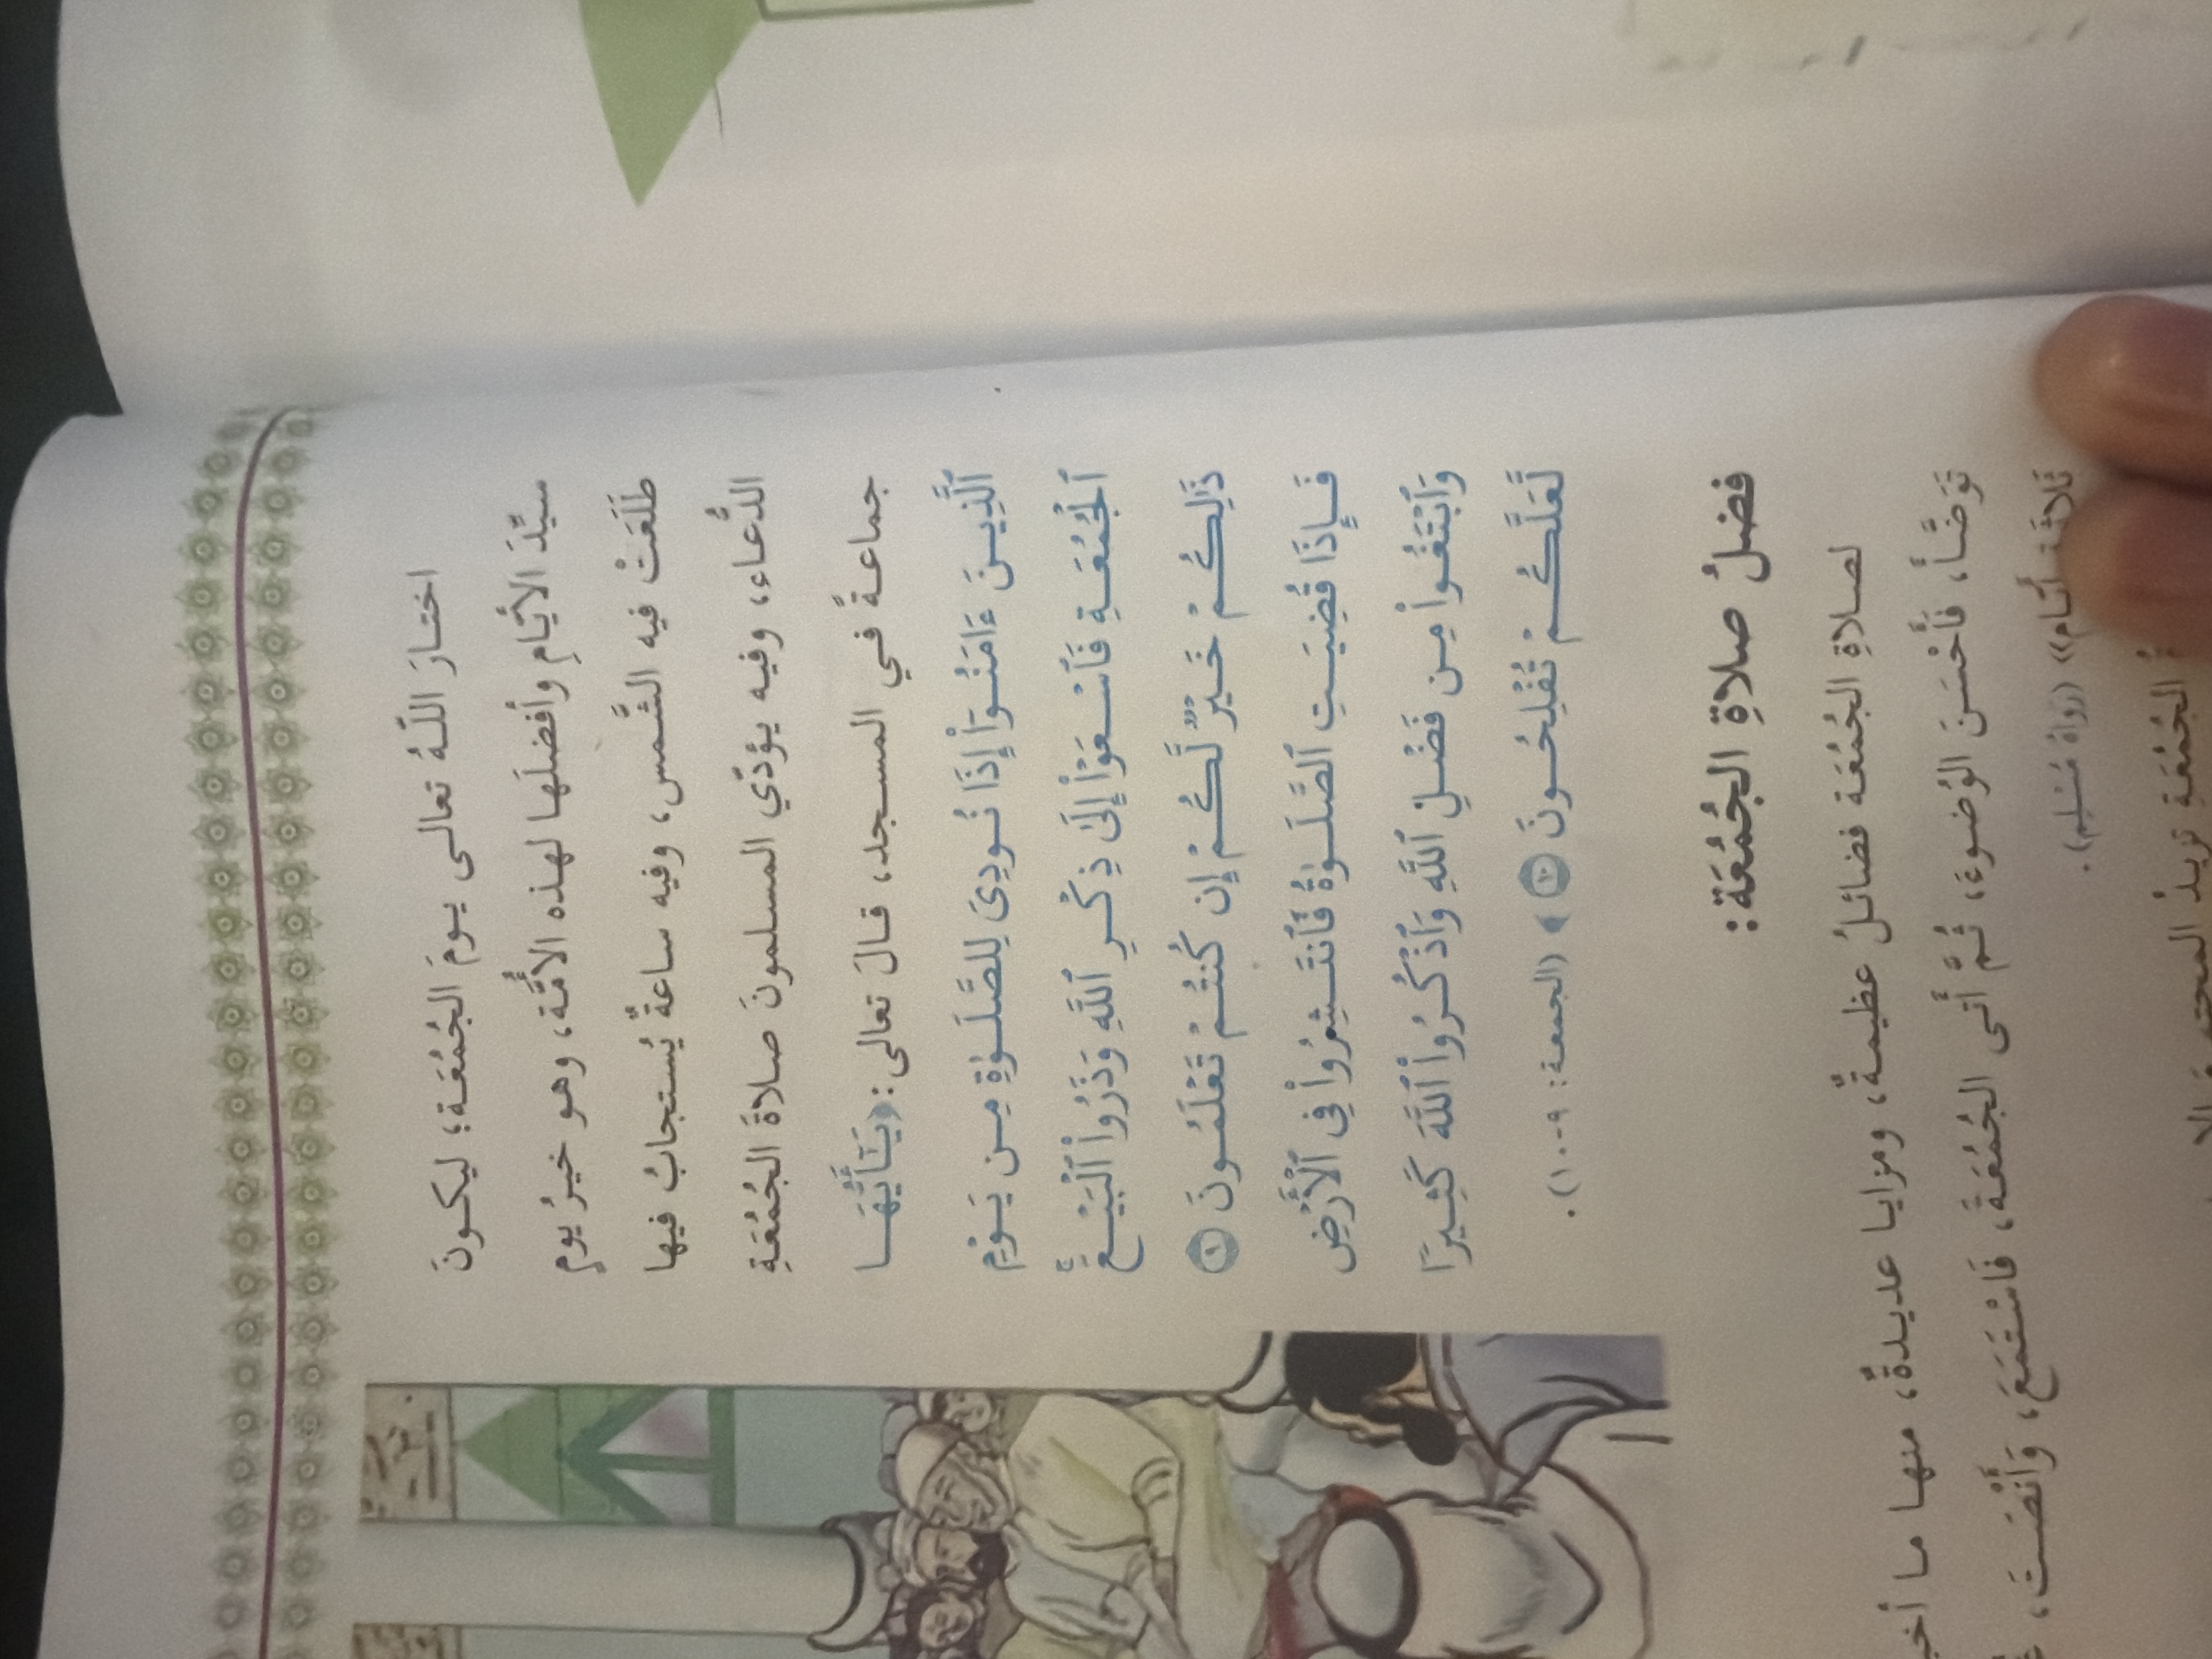 اختارَ اللّهُ تعالى يومَ الجُمُعَة؛ ليكونَ
سيِّدَ الأيّامِ وأفضلَها لهذه الأُمَّة، وهو خيرُ يومٍ
طَلَعَتْ فيه الشَّمس، وفيه ساعةٌ يُستجابُ فيها
الدُّعاء، وفيه يؤدّي المسلمونَ صلاةَ الجُمُعَةِ
جماعةً في المسجد، قالَ تعالى: ﴿يَـٰٓأَيُّهَا
ٱلَّذِينَ ءَامَنُوٓاْ إِذَا نُودِىَ لِلصَّلَوٰةِ مِن يَوْمِ
ٱلْجُمُعَةِ فَٱسْعَوْاْ إِلَىٰ ذِكْرِ ٱللَّهِ وَذَرُواْ ٱلْبَيْعَۚ
ذَٰلِكُمْ خَيْرٌ لَّكُمْ إِن كُنتُمْ تَعْلَمُونَ ٩
فَإِذَا قُضِيَتِ ٱلصَّلَوٰةُ فَٱنتَشِرُواْ فِى ٱلْأَرْضِ
وَٱبْتَغُواْ مِن فَضْلِ ٱللَّهِ وَٱذْكُرُواْ ٱللَّهَ كَثِيرًا
لَّعَلَّكُمْ تُفْلِحُونَ ١٠﴾ (الجمعة: ٩-١٠).
فضلُ صلاةِ الجُمُعَة:
لصلاةِ الجُمُعَة فضائلُ عظيمةٌ، ومزايا عديدةٌ، منها ما
تَوَضَّأَ، فَأَحْسَنَ الوُضوءَ، ثُمَّ أَتى الجُمُعَةَ، فَاسْتَمَعَ، وَأَنْصَتَ،
ثَلاثَة أَيّام» (رَواهُ مُسْلِم).
الجُمُعَةِ تزيدُ